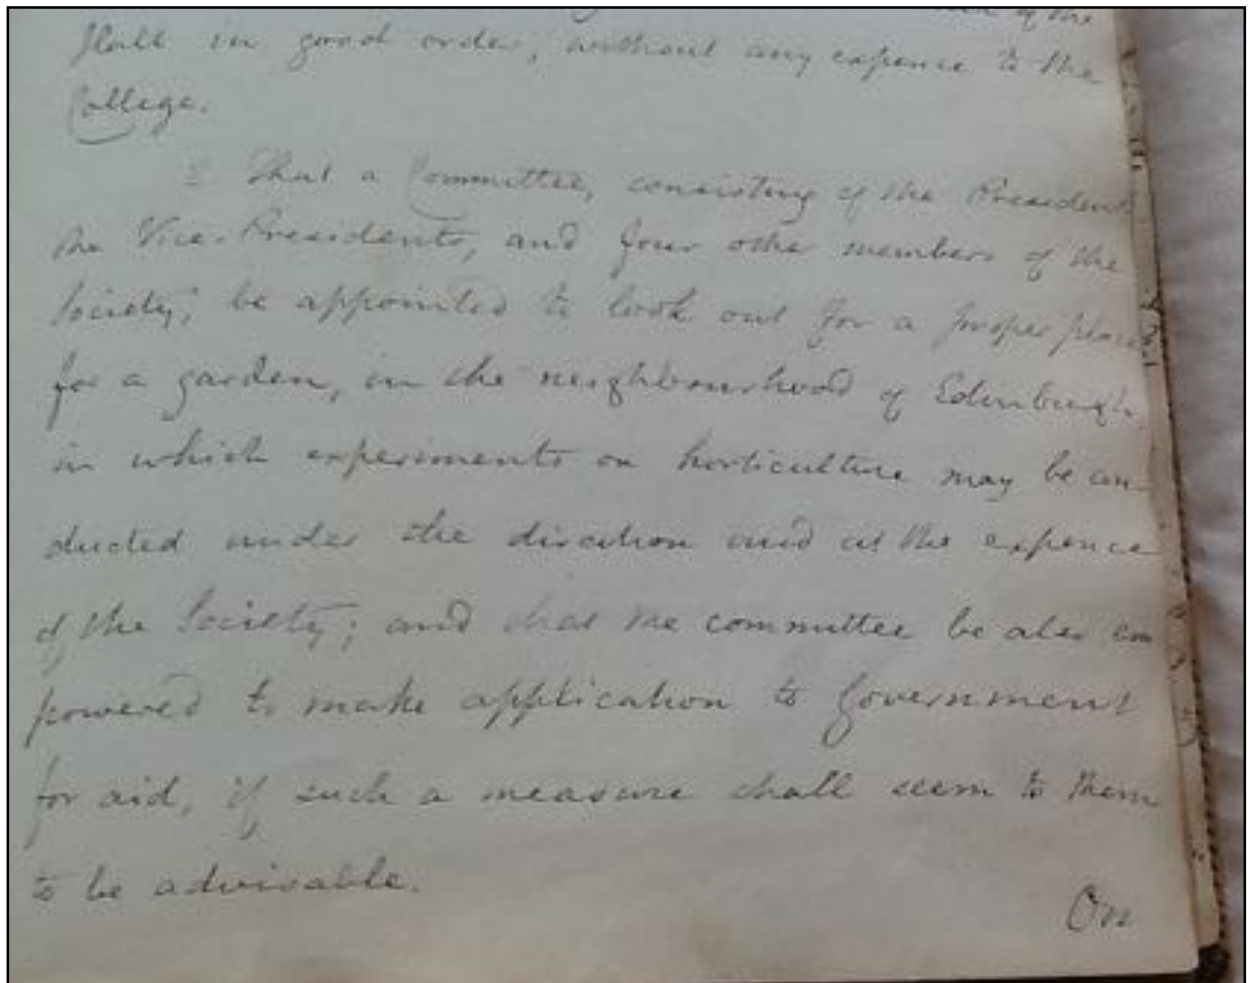 of the
Hall in good order, without any expence to the
College.
2 That a Committee, consisting of the President
the Vice-Presidents, and four other members of the
Society, be appointed to look out for a proper place
for a garden, in the neighbourhood of Edinburgh,
in which experiments on horticulture may be con-
ducted under the direction and at the expence
of the Society; and that the committee be also em
powered to make application to Government
for aid, if such a measure shall seem to them
to be advisable.
On